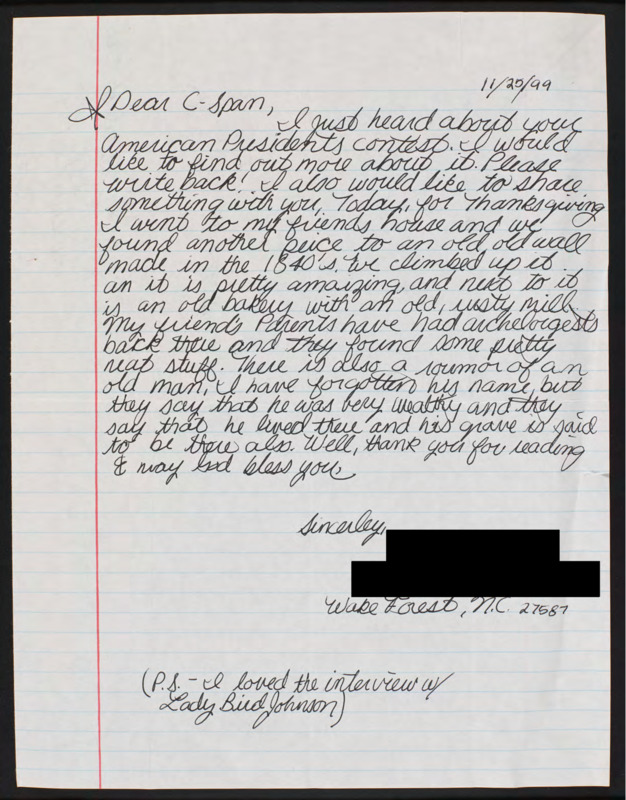 11/25/99
Dear C-Span,
I just heard about your
American Presidents contest. I would
like to find out more about it. Please
write back! I also would like to share
something with you, Today, for Thanksgiving
I went to my friends house and we
found another peice to an old old wall
made in the 1840's. We climbed up it
an it is pretty amaizing, and next to it
is an old bakery with an old, rusty mill.
My friends Parents have had archelorgests
back there and they found some pretty
neat stuff. There is also a roumor of an
old man, I have forgotten his name, but
they say that he was very wealthy and they
say that he lived there and his grave is said
to be there also. Well, thank you for reading
& may God bless you.
Sincerley,
Wake Forest, N.C. 27587
(P.S. - I loved the interview w/
Lady Bird Johnson)